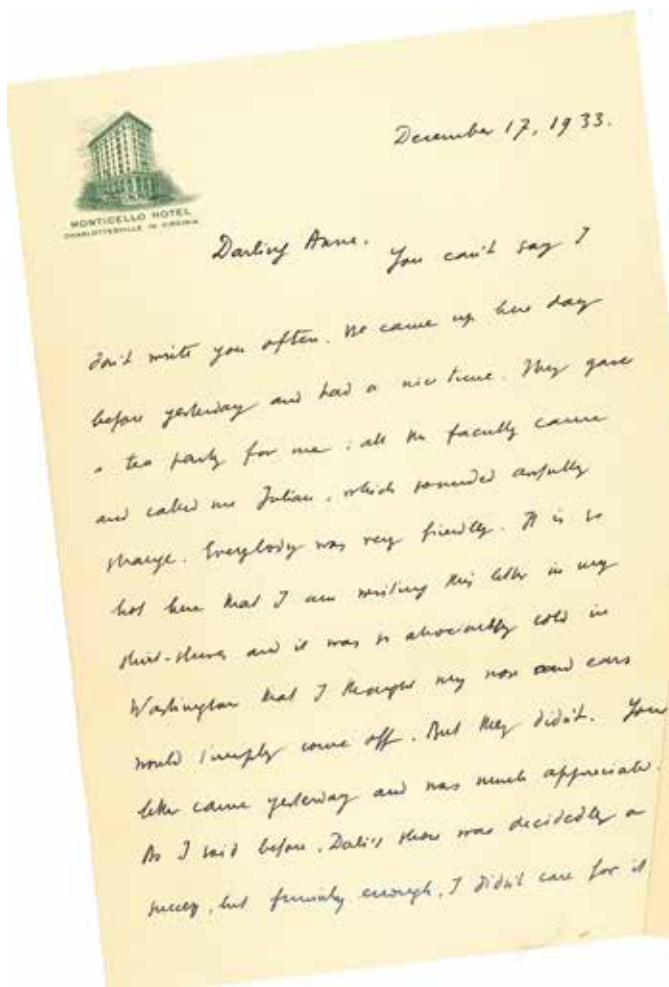 MONTICELLO HOTEL
CHARLOTTESVILLE IN VIRGINIA
December 17, 1933.
Darling Anne. You can't say I
don't write you often. We came up here day
before yesterday and had a nice time. They gave
a tea party for me; all the faculty came
and called me Julian, which sounded awfully
strange. Everybody was very friendly. It is so
hot here that I am writing this letter in my
shirt-sleeves and it was so abominably cold in
Washington that I thought my nose and ears
would simply come off. But they didn't. Your
letter came yesterday and was much appreciated.
As I said before, Dali's show was decidedly a
success, but funnily enough, I didn't care for it